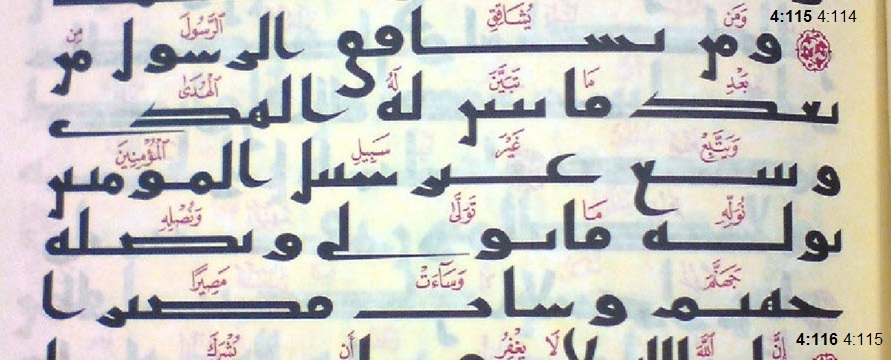 4:115 4:114
وَمَن يُشَاقِقِ ٱلرَّسُولَ مِنۢ
ومن يشاقق الرسول من
بَعْدِ مَا تَبَيَّنَ لَهُ ٱلْهُدَىٰ
بعد ما تبين له الهدى
وَيَتَّبِعْ غَيْرَ سَبِيلِ ٱلْمُؤْمِنِينَ
ويتبع غير سبيل المومنين
نُوَلِّهِ مَا تَوَلَّىٰ وَنُصْلِهِ
نوله ما تولى ونصله
جَهَنَّمَ وَسَآءَتْ مَصِيرًا
جهنم وسات مصيرا
4:116 4:115
إِنَّ ٱللَّهَ لَا يَغْفِرُ أَن يُشْرَكَ